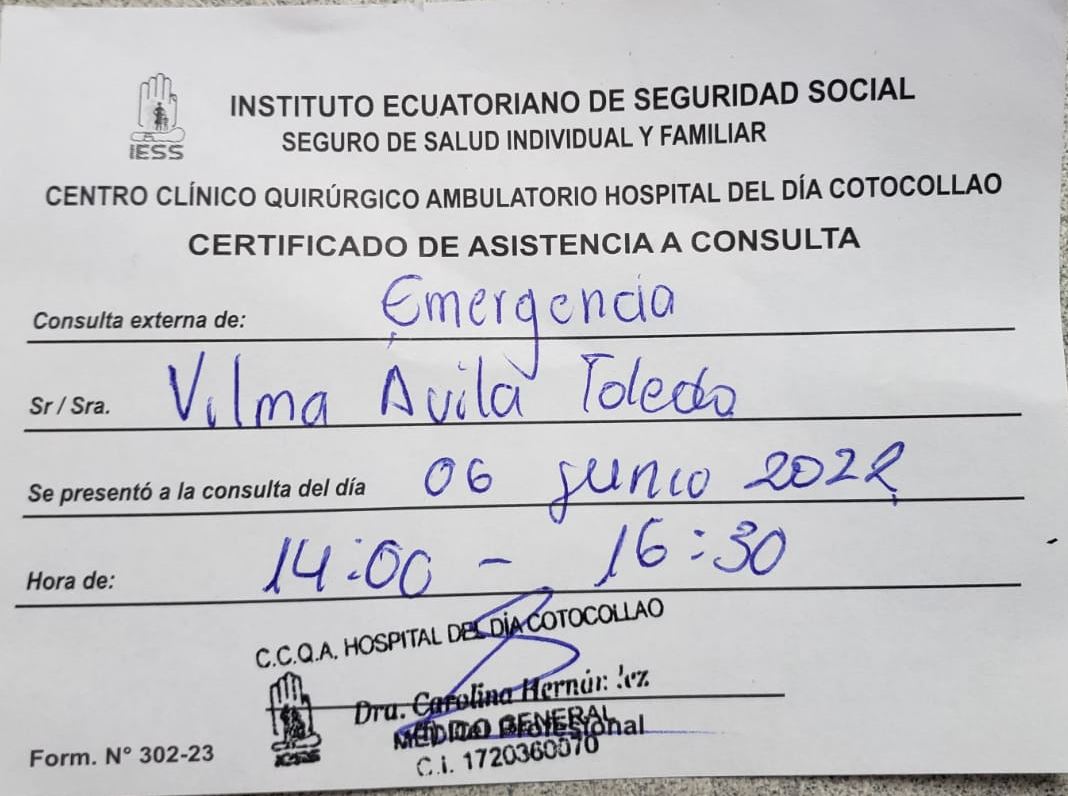 INSTITUTO ECUATORIANO DE SEGURIDAD SOCIAL
IESS
SEGURO DE SALUD INDIVIDUAL Y FAMILIAR
CENTRO CLÍNICO QUIRÚRGICO AMBULATORIO HOSPITAL DEL DÍA COTOCOLLAO
CERTIFICADO DE ASISTENCIA A CONSULTA
Consulta externa de: Emergencia
Sr / Sra. Vilma Avila Toledo
Se presentó a la consulta del día 06 junio 2022
Hora de: 14:00 - 16:30
C.C.Q.A. HOSPITAL DEL DÍA COTOCOLLAO
Dra. Carolina
MEDICO GENERAL
Profesional
Form. N° 302-23
C.i. 1720360070